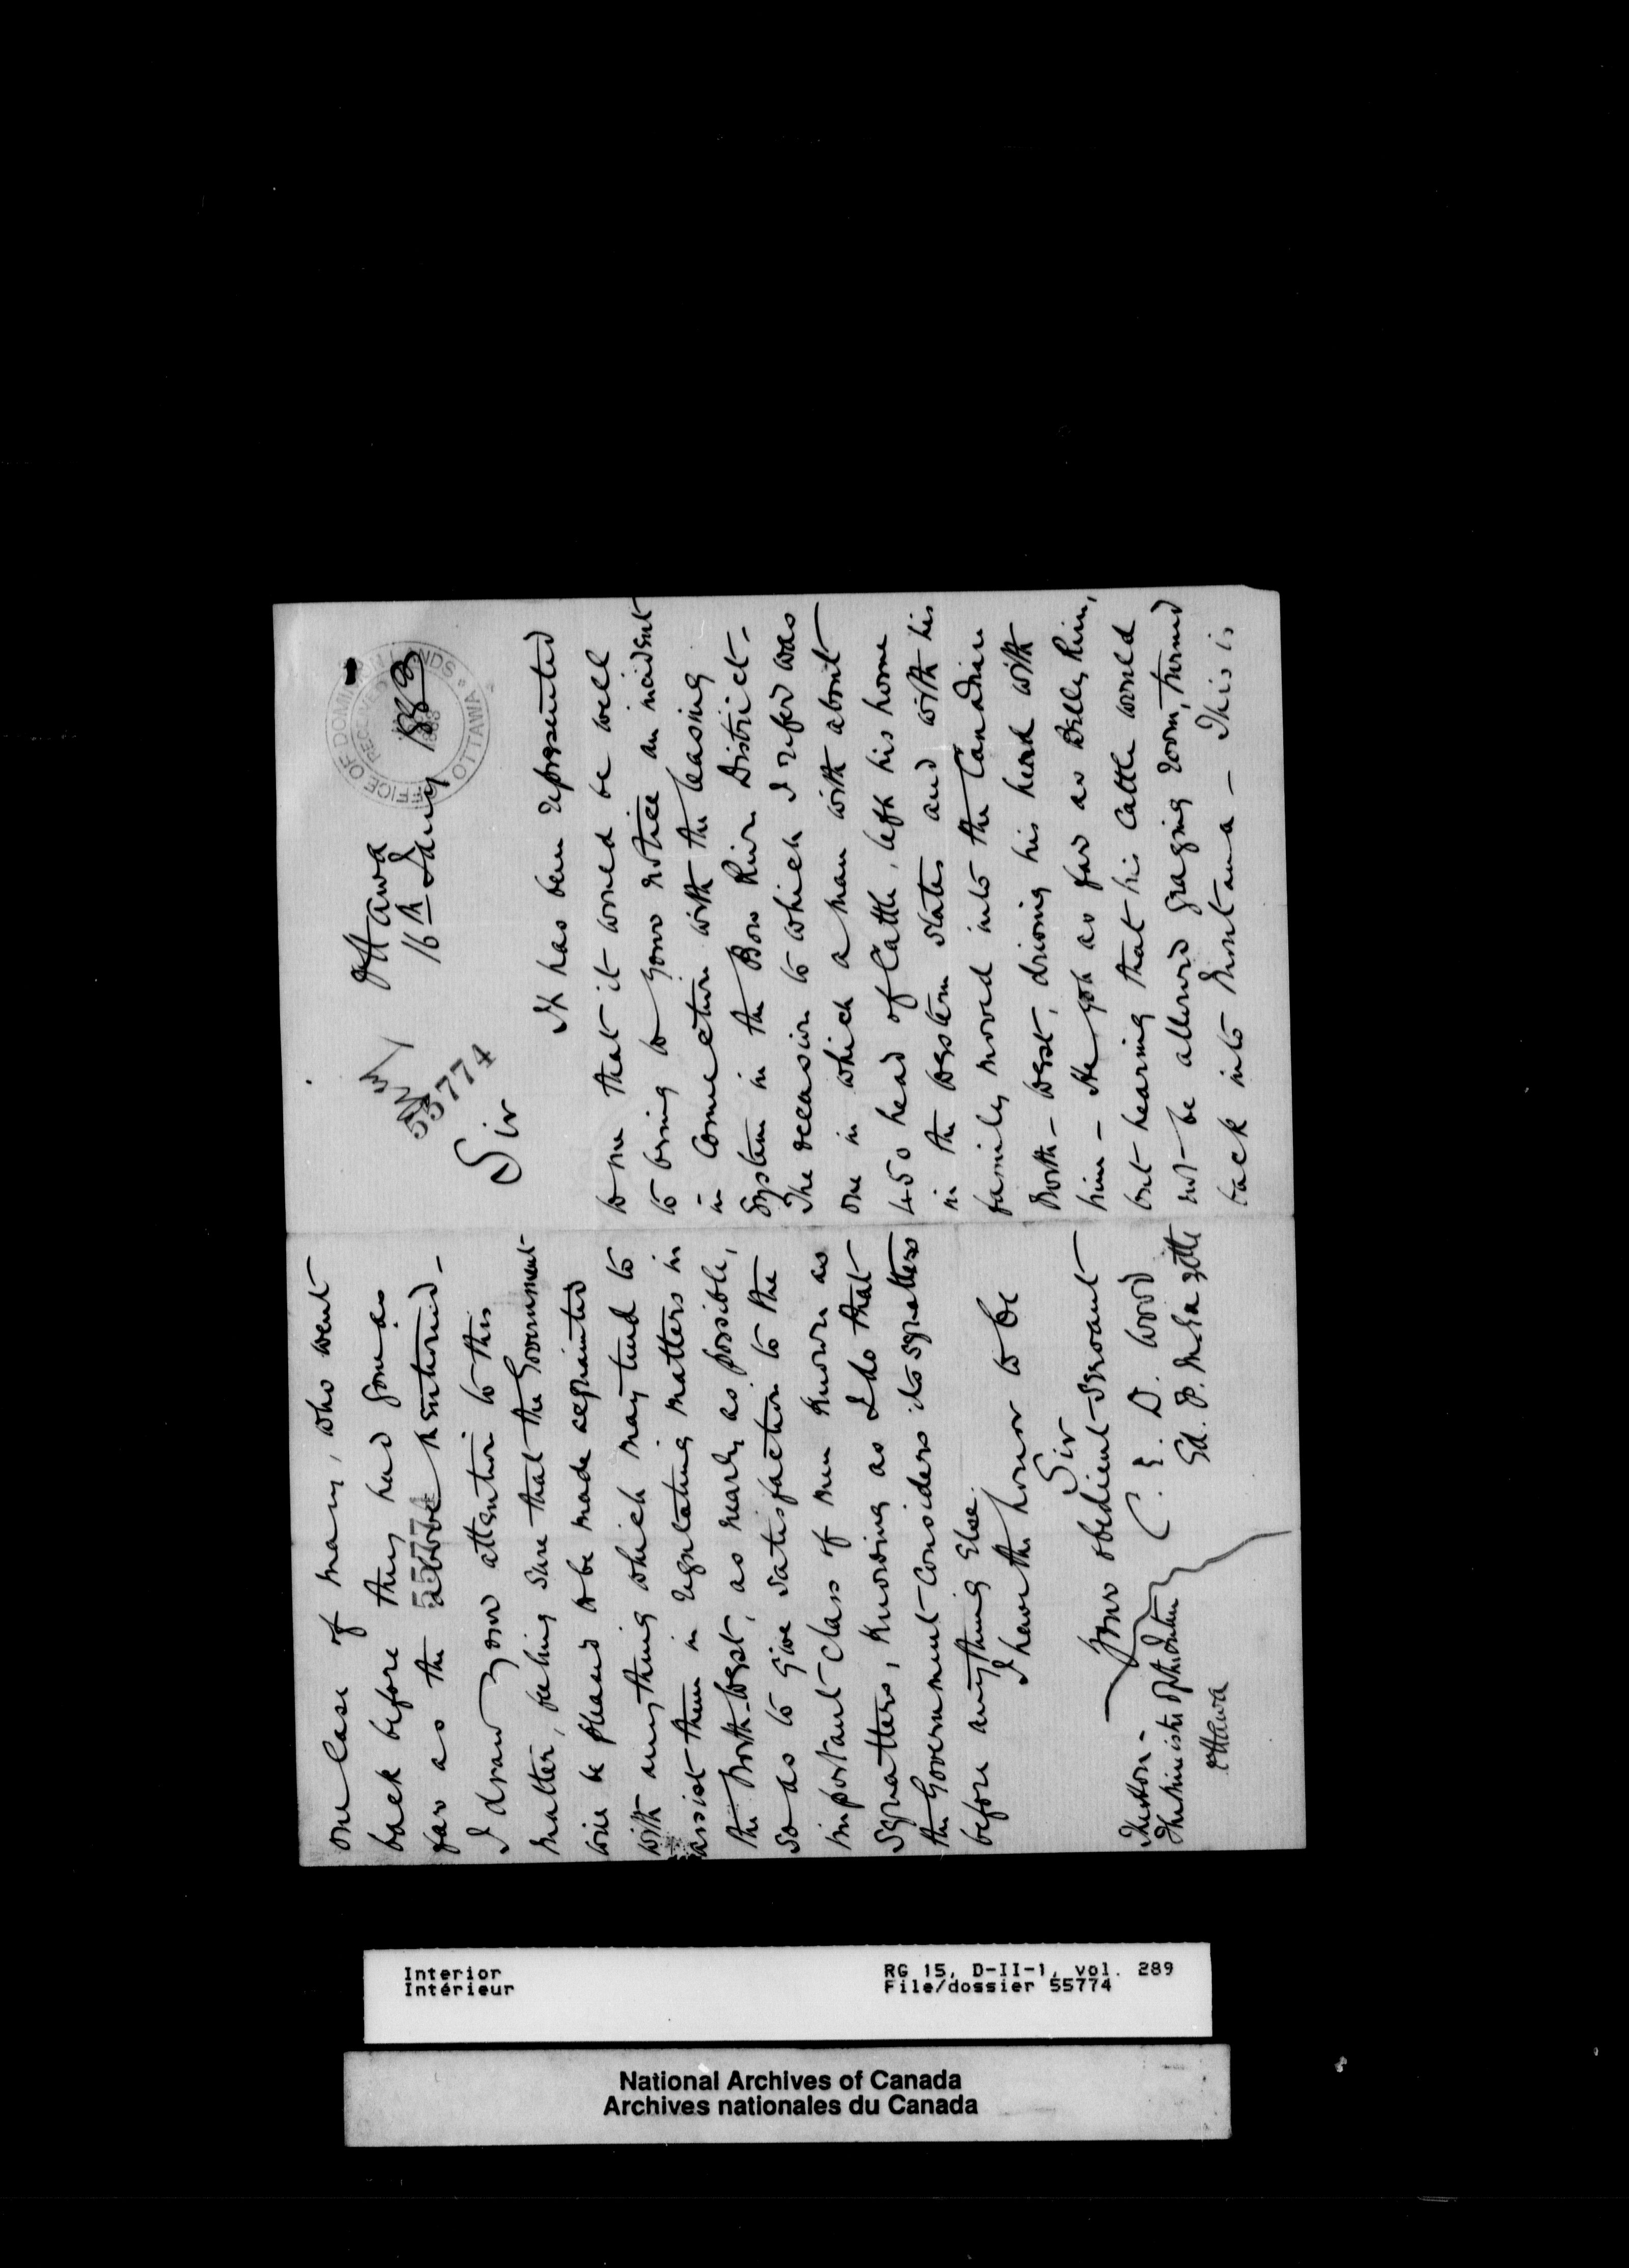 Ottawa
16th Jany 1883
OFFICE OF DOMINION LANDS
RECEIVED
1883
OTTAWA
55774
Sir
It has been represented
to me that it would be well
to bring to your notice an incident
in connection with the leasing
system in the Bow River District -
The occasion to which I refer was
one in which a man with about
450 head of Cattle, left his home
in the western States and with his
family moved into the Canadian
North-West, driving his herd with
him - He got as far as Belly River,
but hearing that his Cattle would
not be allowed grazing room, turned
back into Montana - This is
one case of many, who went
back before they had gone as
far as the above mentioned -
55774
I draw your attention to this
matter, feeling sure that the Government
will be pleased to be made acquainted
with anything which may tend to
assist them in regulating matters in
the North-West, as nearly as possible,
so as to give satisfaction to the
important class of men known as
Squatters, Knowing as I do that
the Government Considers its squatters
before anything else.
I have the honor to be
Sir
Your obedient servant
C. E. D. Wood
Ed. McLeod Gazette
The Hon.
The Minister of the Interior
Ottawa
Interior
Intérieur
RG 15, D-II-1, vol. 289
File/dossier 55774
National Archives of Canada
Archives nationales du Canada